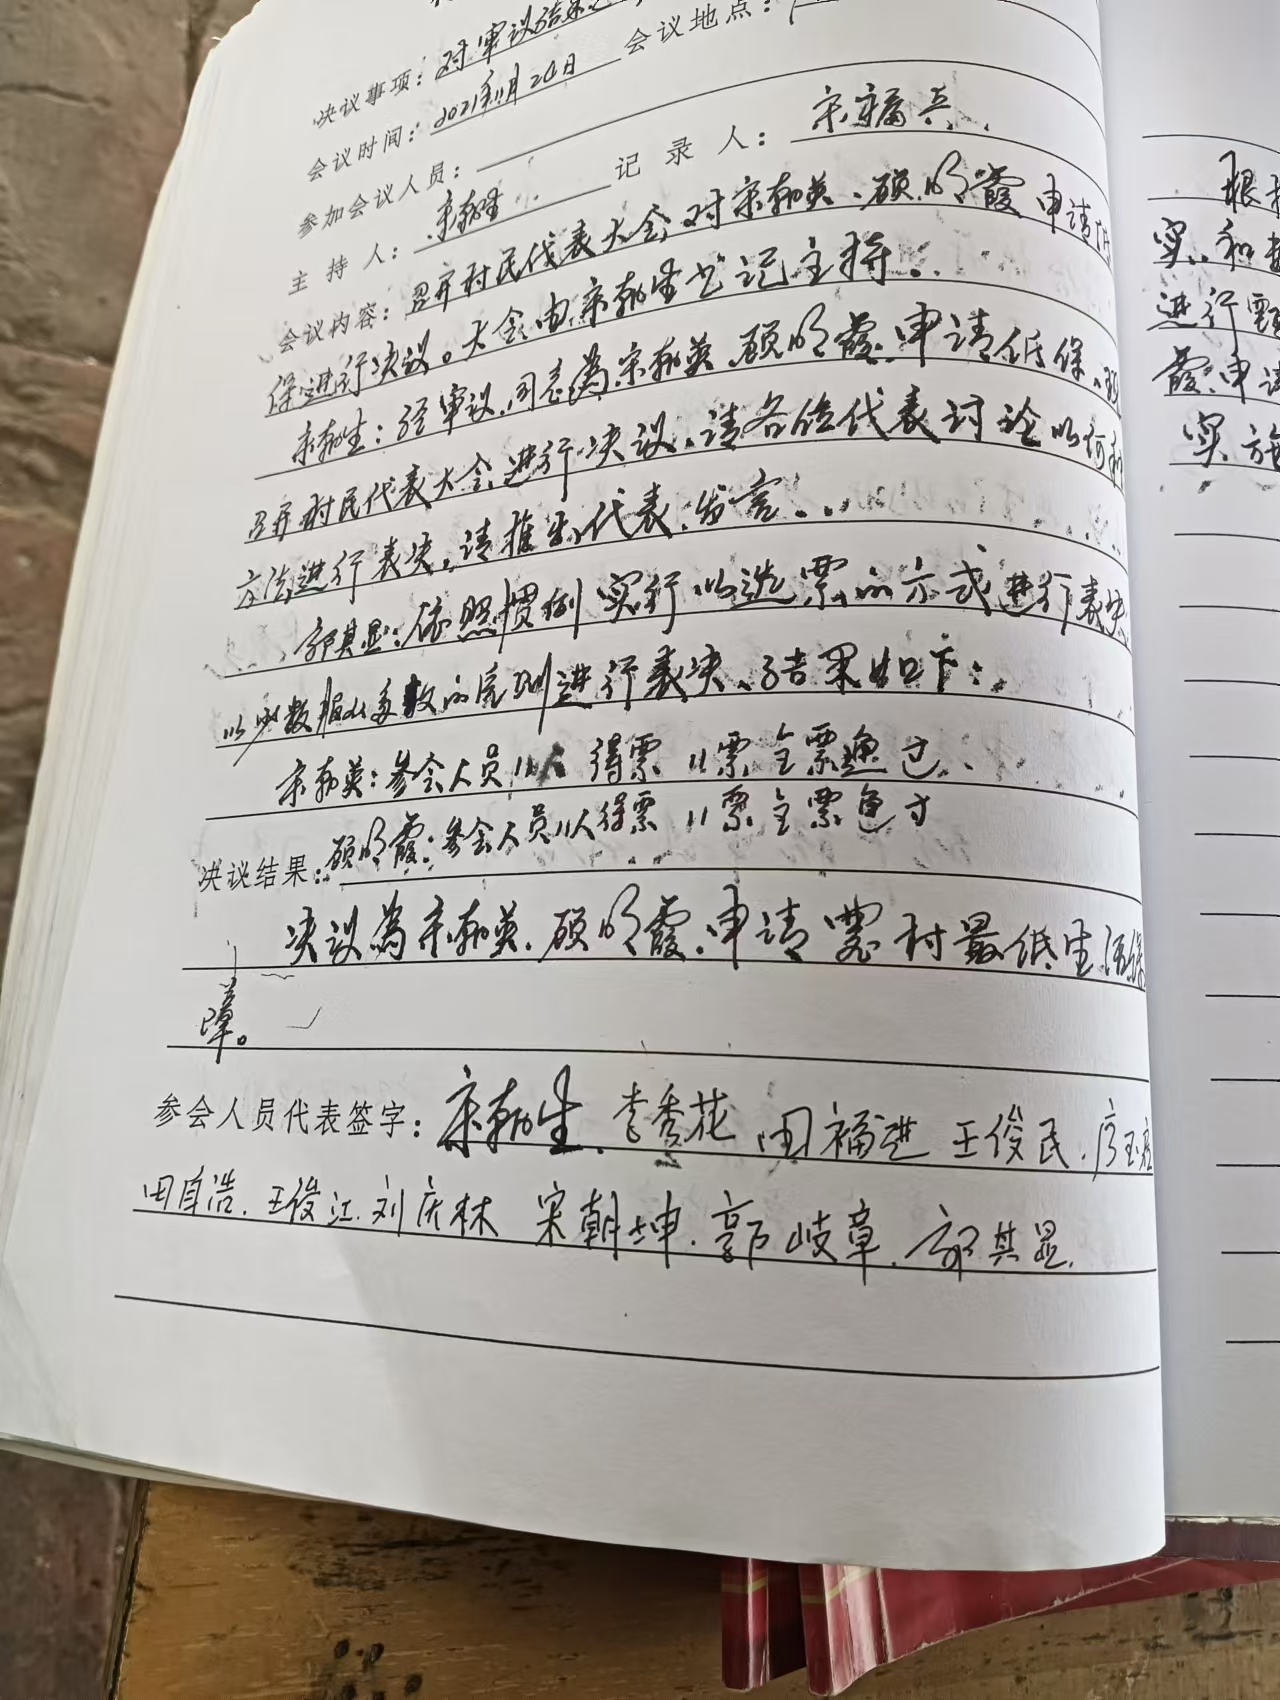 决议事项：对审议结果
会议时间：2021年11月24日 会议地点：
参加会议人员：
主持人：宋朝生 记录人：宋福兵
会议内容：召开村民代表大会，对宋朝英、顾明霞申请
保进行决议。大会由宋朝生书记主持。
宋朝生：经审议，同志為宋朝英、顾明霞申请低保，现
召开村民代表大会进行决议，请各位代表讨论以何种
方法进行表决，请推出代表发言。
郭其显：依照惯例实行以选票的方式进行表决
以少数服从多数的原则进行表决、结果如下：
宋朝英：参会人员11人 得票 11票全票通过
顾明霞：参会人员11人得票 11票全票通过
决议结果：
决议為宋朝英、顾明霞申请農村最低生活保
障。
参会人员代表签字：宋朝生 李秀花 田福进 王俊民
田自浩 王俊江 刘庆林 宋朝坤 郭岐章 郭其显
根
实和
进行票
霞申请
实施